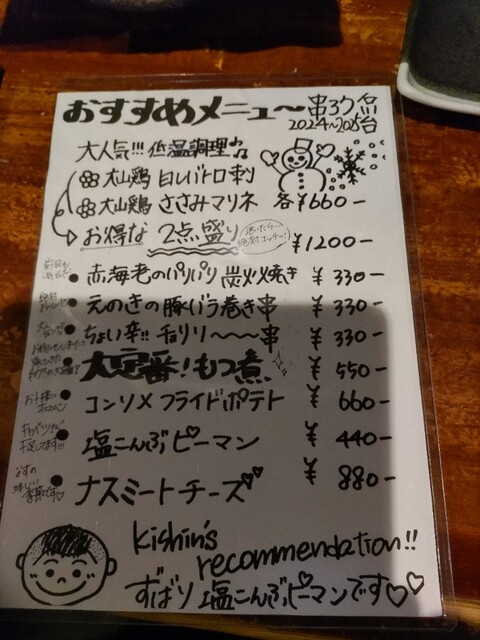 おすすめメニュー 串ろう
2024~2025
大人気!!! 低温調理
大山鶏 白レバトロ刺
大山鶏 ささみマリネ 各¥660-
お得な 2点盛り ¥1200-
赤海老のパリパリ炭火焼き ¥330-
えのきの豚バラ巻き串 ¥330-
ちょい辛!! チョリソ〜〜串 ¥330-
大定番!もつ煮 ¥550-
コンソメフライドポテト ¥660-
塩こんぶピーマン ¥440-
なすの
ナスミートチーズ ¥880-
Kishin's
recommendation!!
ずばり 塩こんぶピーマンです♡♡